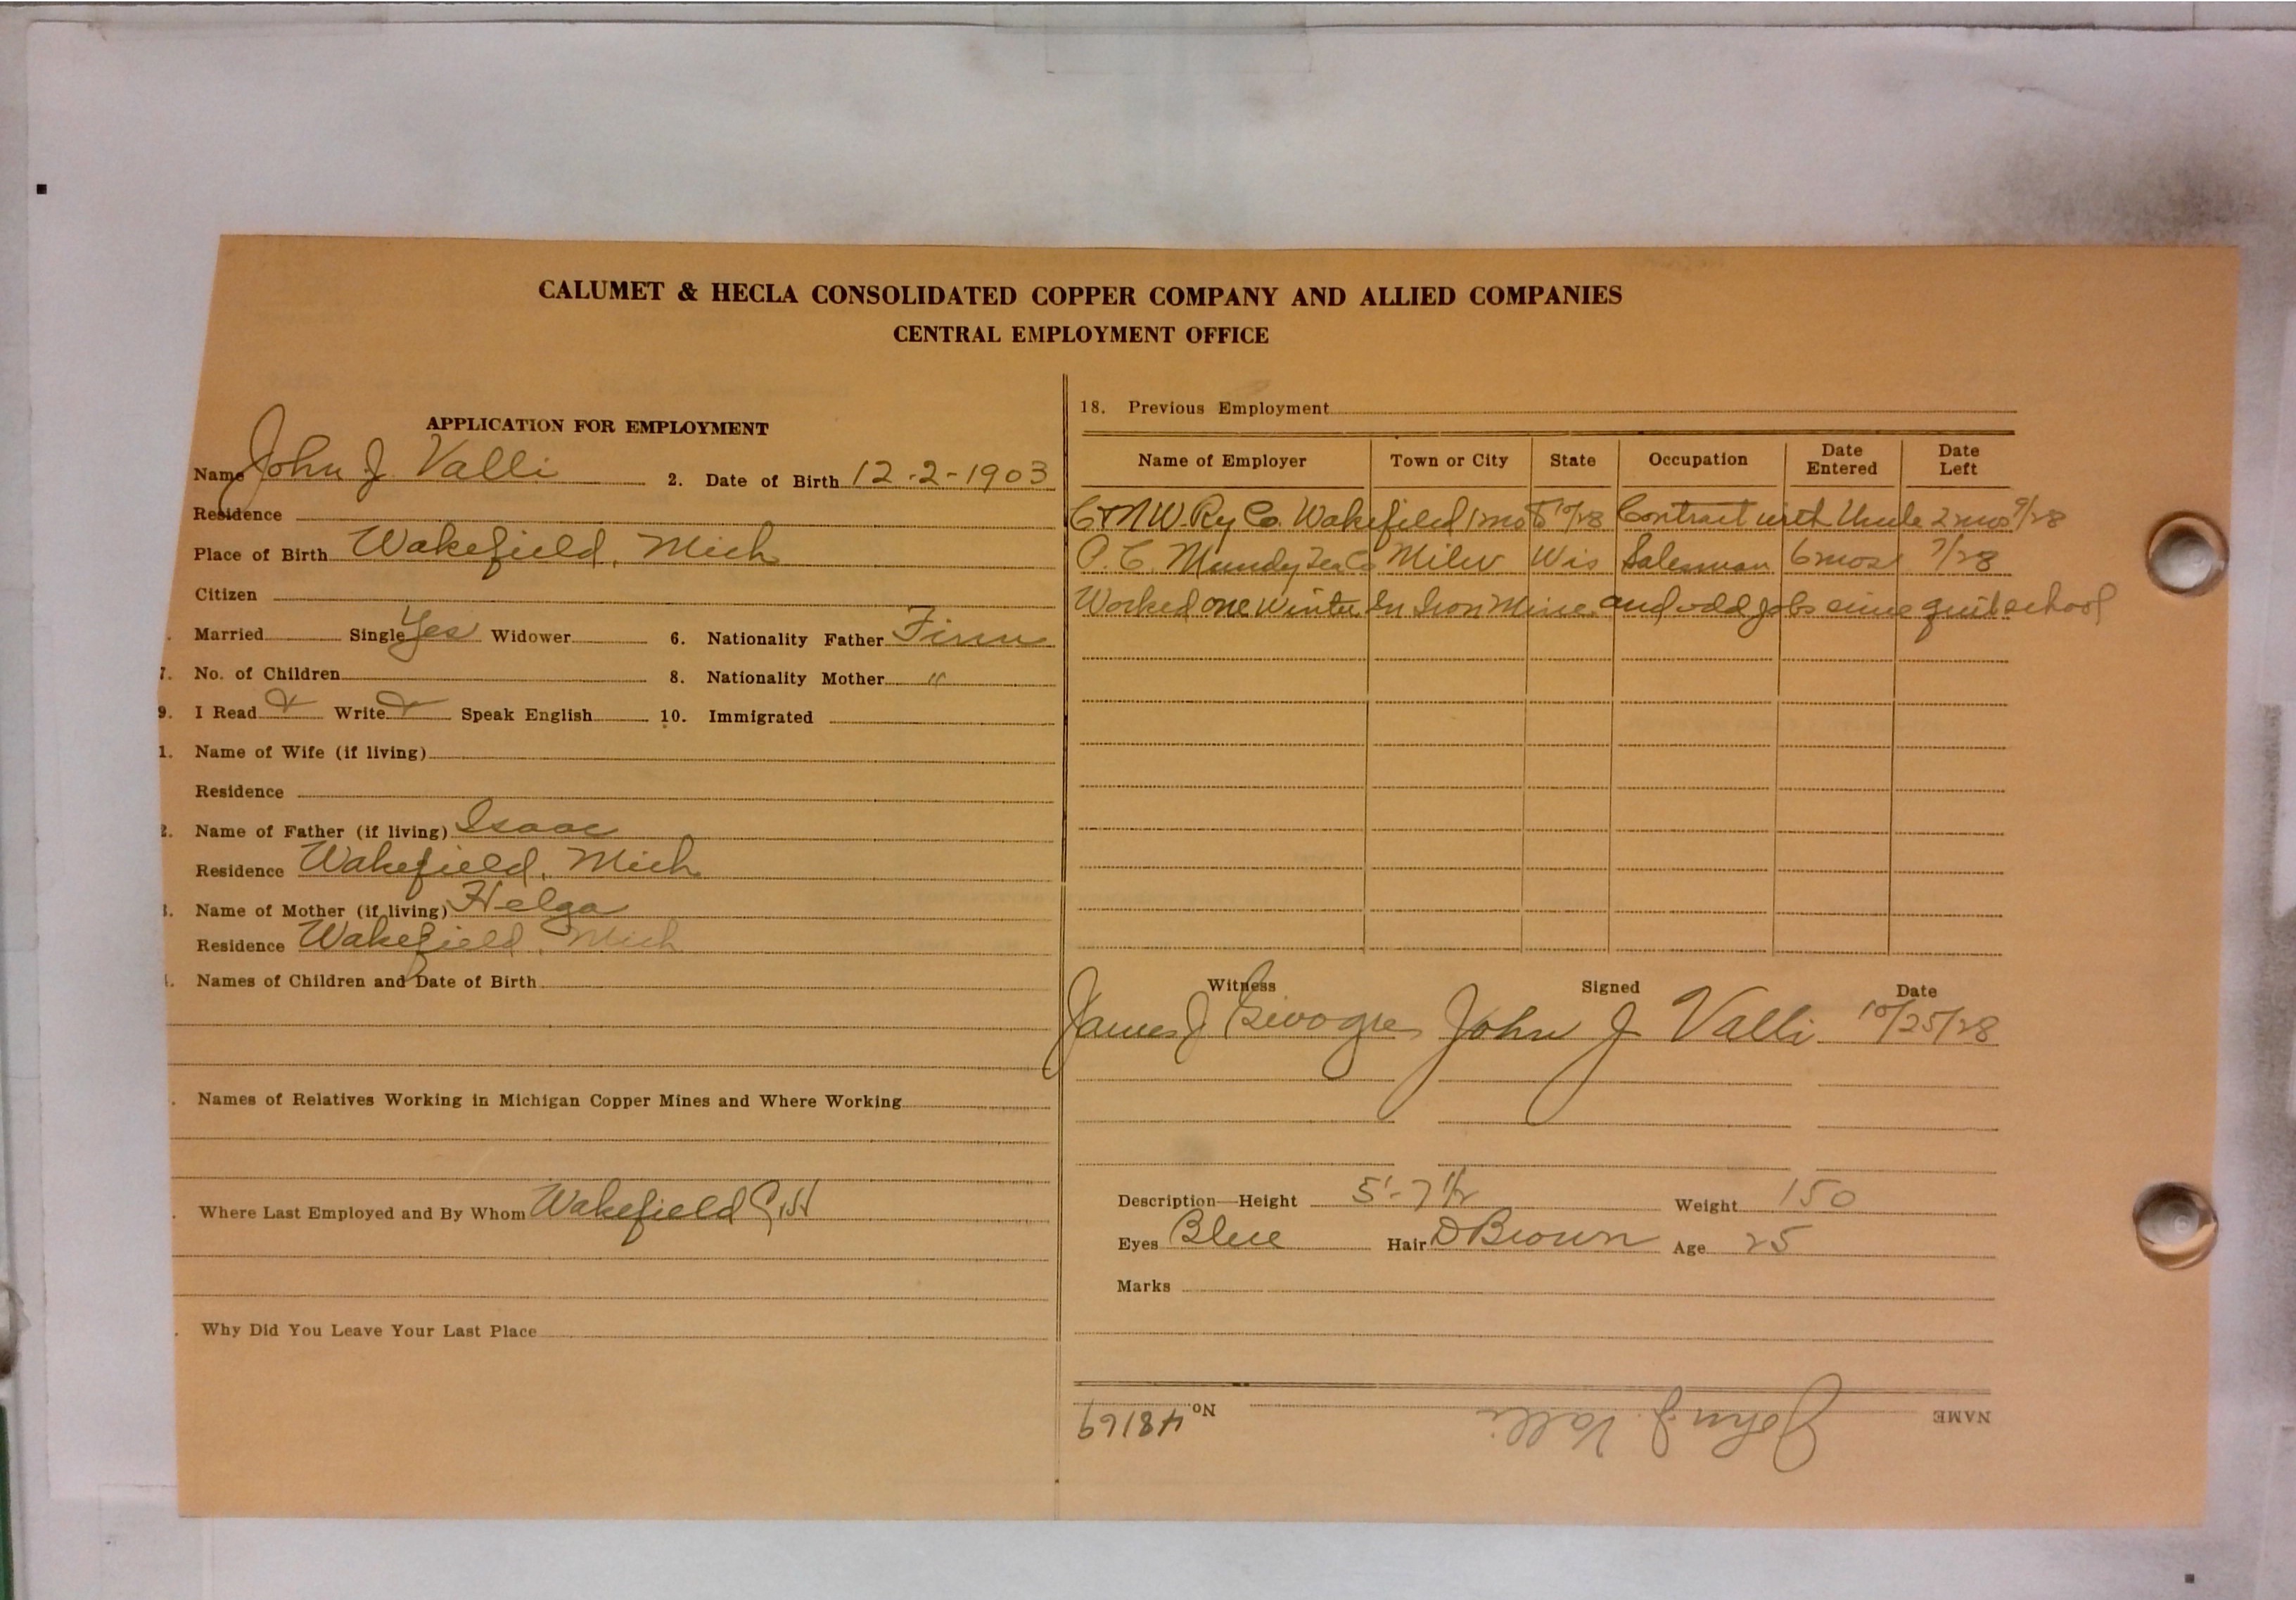 CALUMET & HECLA CONSOLIDATED COPPER COMPANY AND ALLIED COMPANIES
CENTRAL EMPLOYMENT OFFICE
APPLICATION FOR EMPLOYMENT
Name John J Valli 2. Date of Birth 12-2-1903
Residence
Place of Birth Wakefield, Mich
Citizen
Married Single Yes Widower 6. Nationality Father Finn
7. No. of Children 8. Nationality Mother "
9. I Read Write Speak English 10. Immigrated
1. Name of Wife (if living)
Residence
2. Name of Father (if living) Isaac
Residence Wakefield, Mich
3. Name of Mother (if living) Helga
Residence Wakefield, Mich
Names of Children and Date of Birth
Names of Relatives Working in Michigan Copper Mines and Where Working
Where Last Employed and By Whom Wakefield
Why Did You Leave Your Last Place
18. Previous Employment
Name of Employer Town or City State Occupation Date Entered Date Left
C&NW.Ry Co. Wakefield 1 mo to 10/28 Contract with Uncle 2 mos 9/28
Mundy Tea Co Milw Wis Salesman 6 mos 7/28
Worked one winter in Iron Mine and odd jobs since quit school
Witness Signed Date
James J John J Valli 10/25/28
Description—Height 5'-7 1/2 Weight 150
Eyes Blue Hair D Brown Age 25
Marks
NAME John J. Valli No. 48169